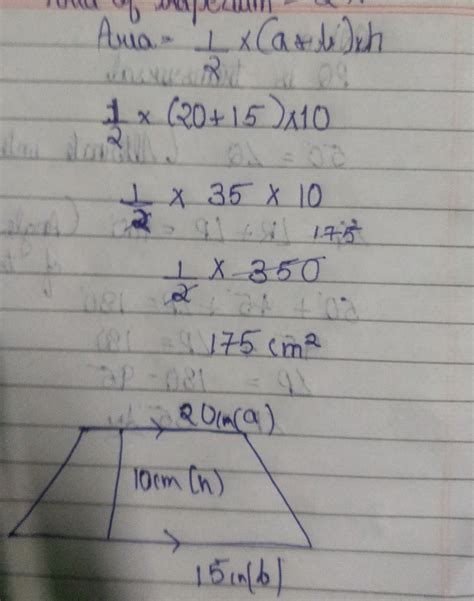 Area of trapezium =
Area = 1/2 × (a + b) × h
1/2 × (20 + 15) × 10
1/2 × 35 × 10
175
1/2 × 350
175 cm²
20cm(a)
10cm (h)
15cm(b)